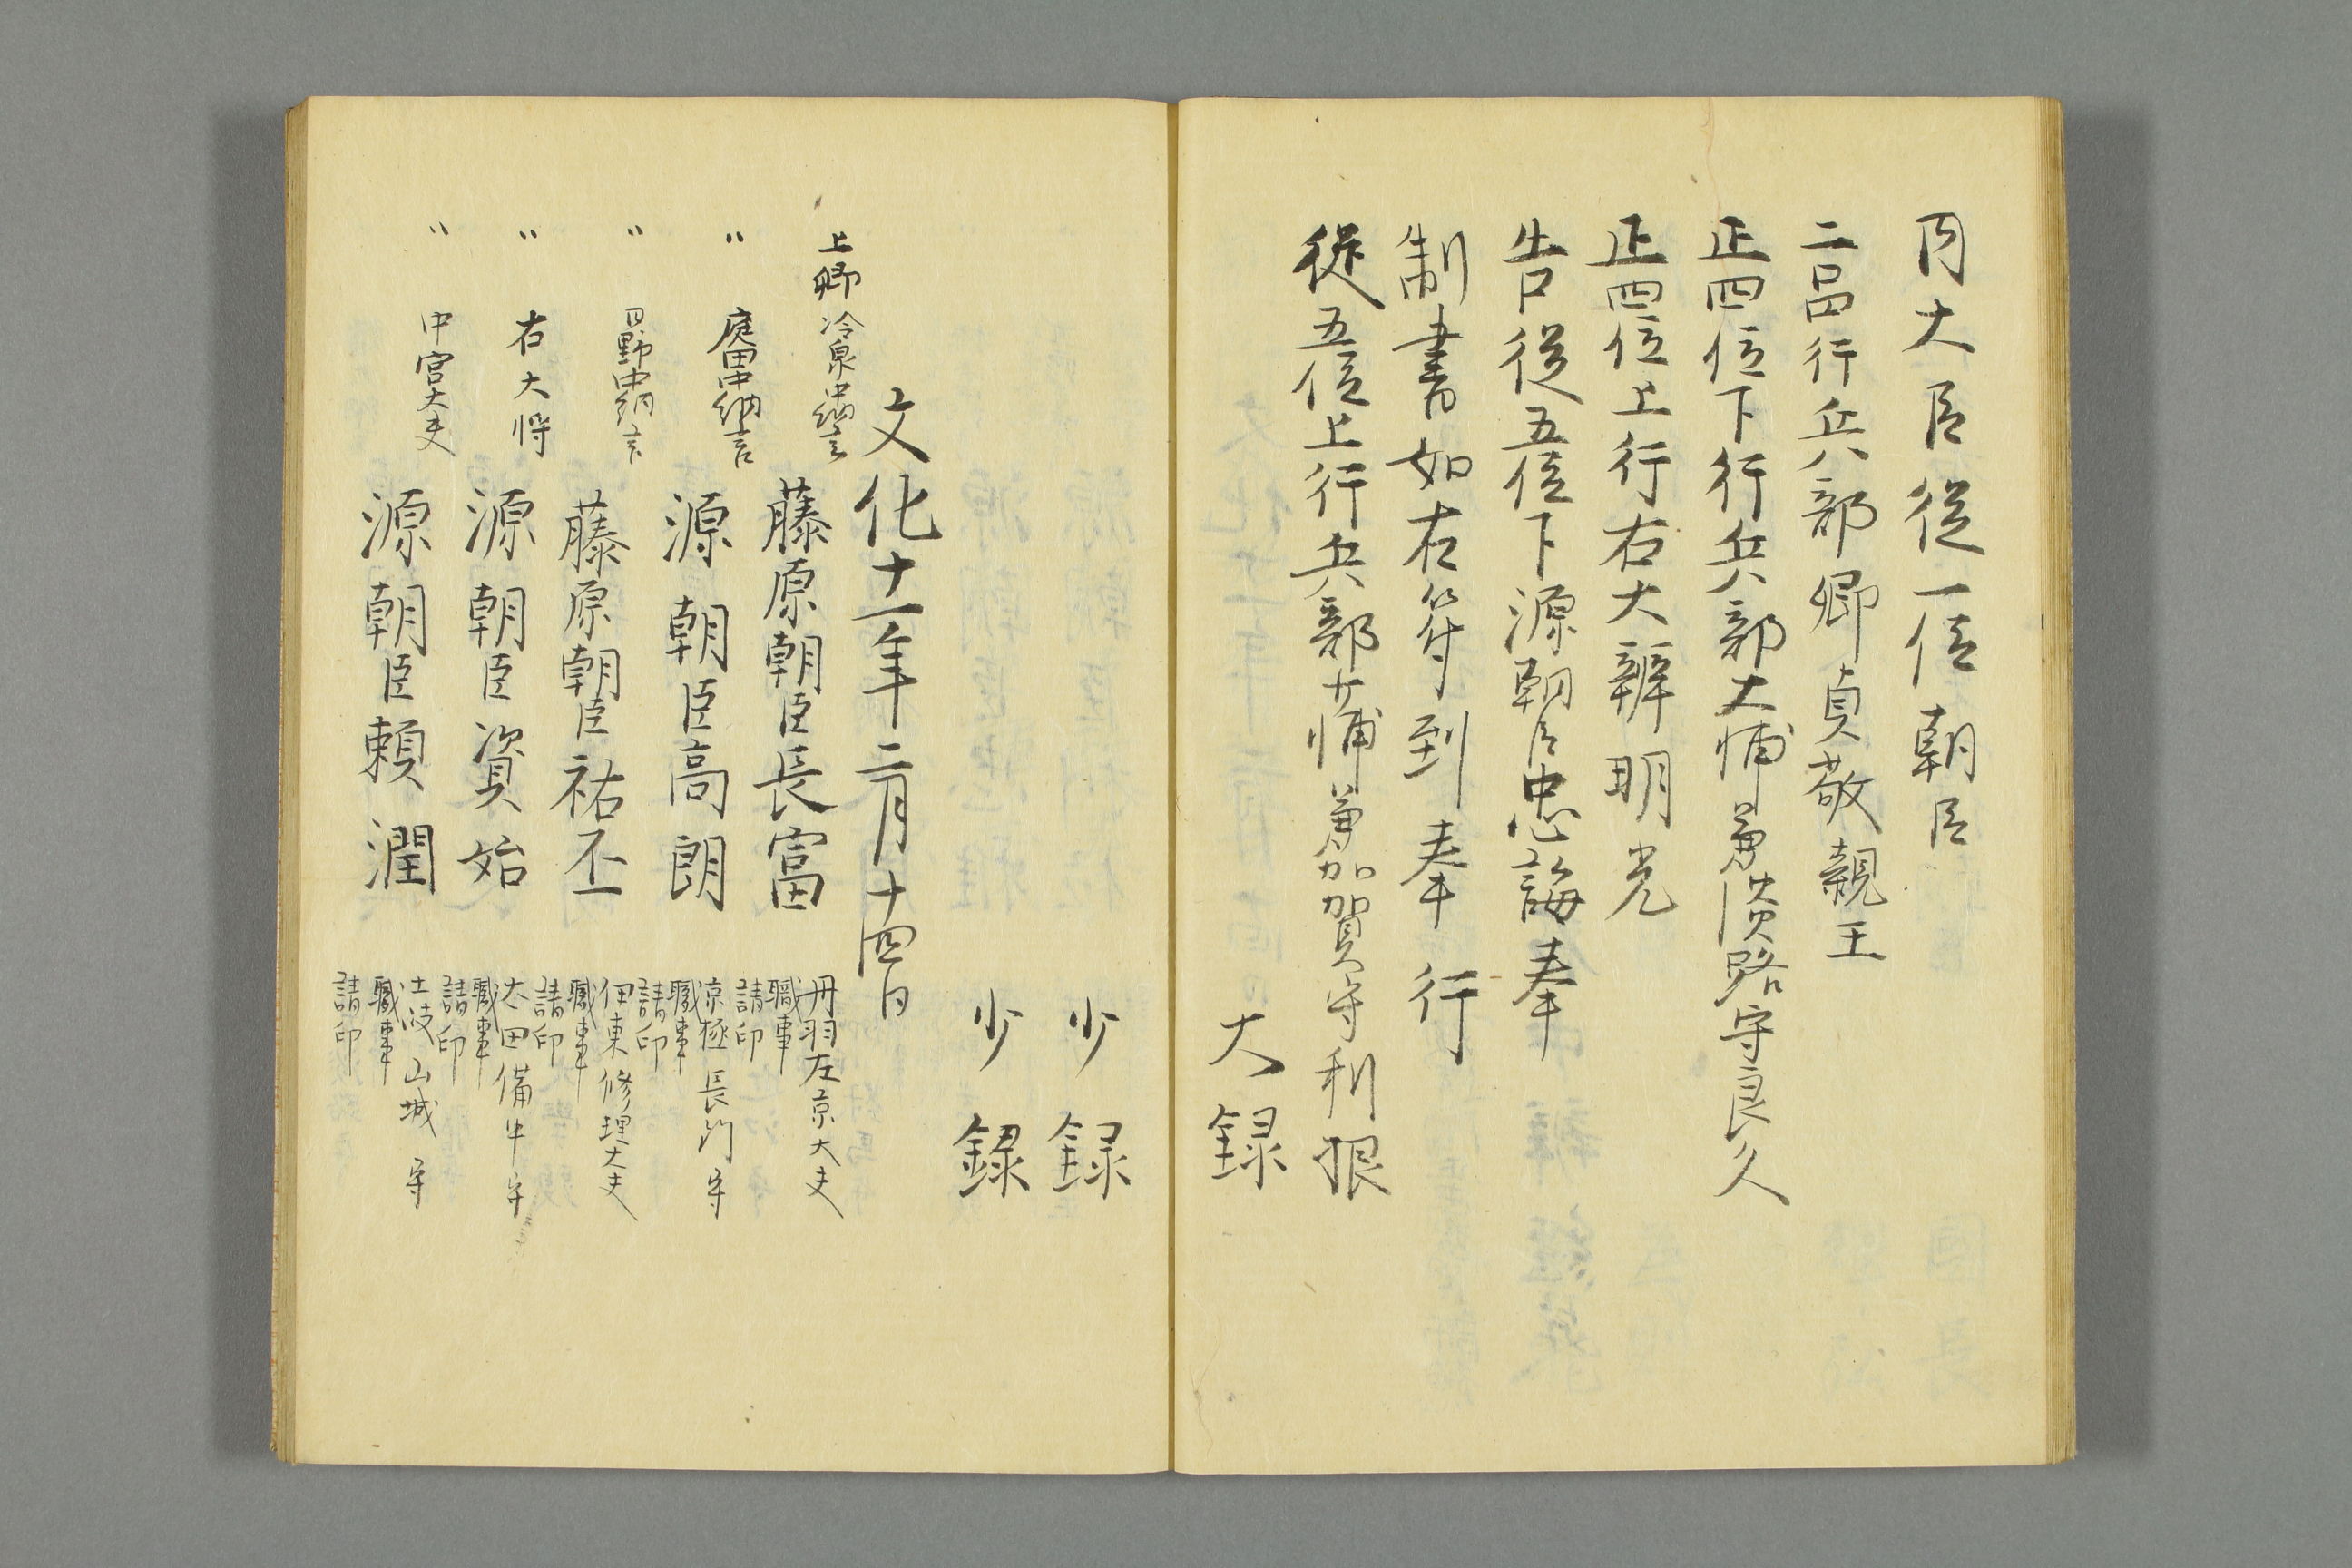 内大臣従一位朝臣
二品行兵部卿貞敬親王
正四位下行兵部大輔兼淡路守良久
正四位上行右大辨明光
告従五位下源朝臣忠誨奉
制書如右符到奉行
従五位上行兵部少輔兼加賀守利根
大録
少録
少録
文化十一年二月十四日
上卿 冷泉中納言 藤原朝臣長富 丹羽左京大夫
職事
請印
〃 庭田中納言 源朝臣高朗 京極長門守
職事
請印
〃 日野中納言 藤原朝臣祐丕 伊東修理大夫
職事
請印
〃 右大将 源朝臣資始 太田備中守
職事
請印
〃 中宮大夫 源朝臣頼潤 土岐山城守
職事
請印